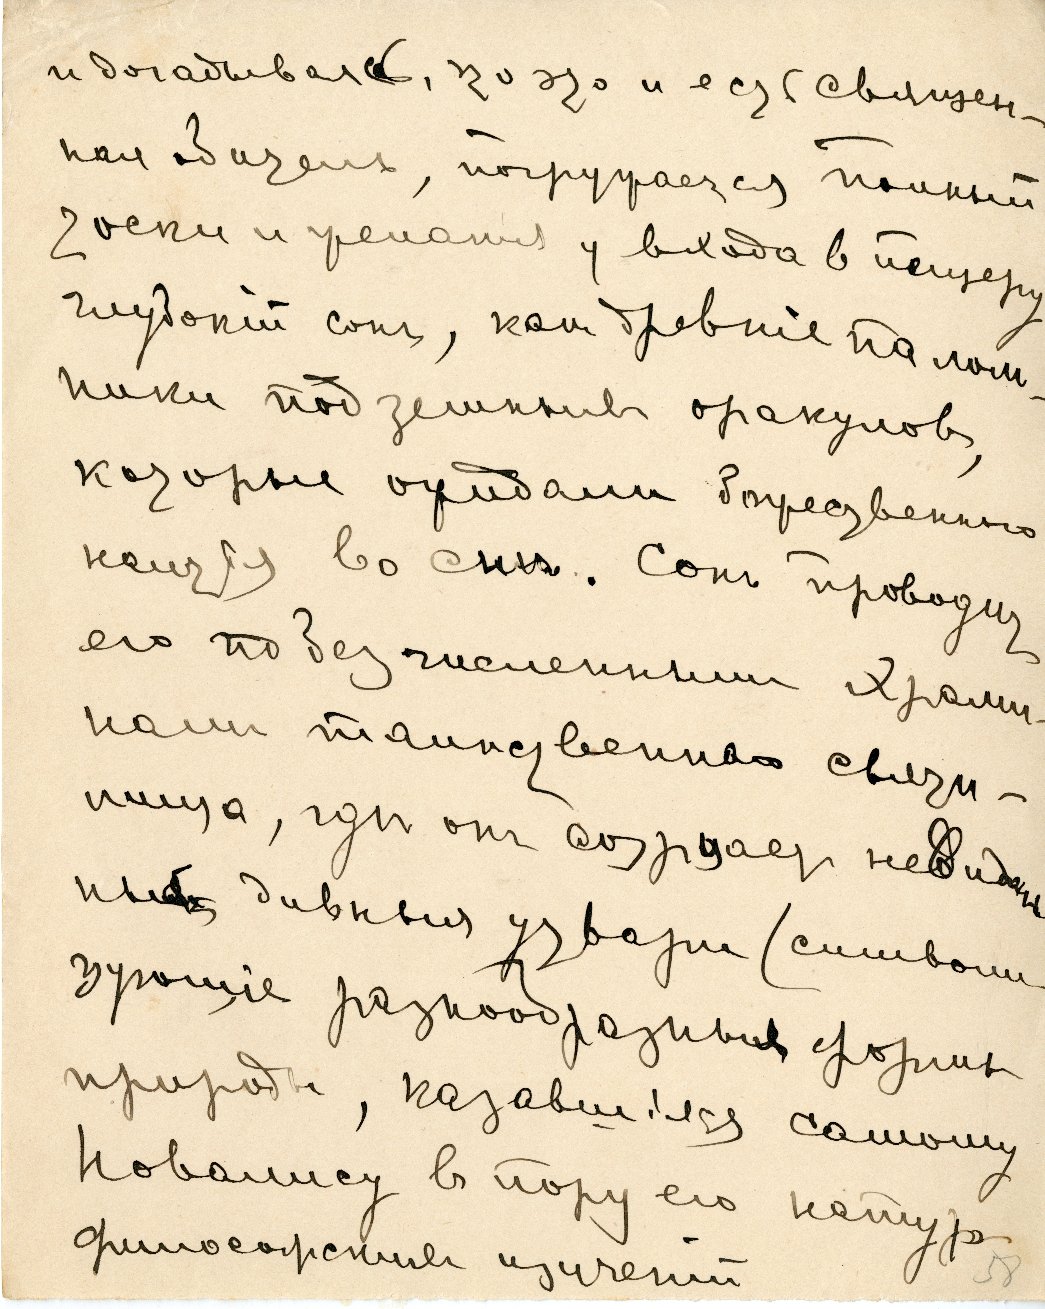 и догадываясь, что это и есть священ-
ная обитель, погружается полный
тоски и желанья у входа в пещеру
глубокiй сонъ, как древнiе палом-
ники подземныхъ оракуловъ,
которые ожидали божественнаго
наитiя во снѣ. Сонъ проводитъ
его по безчисленнымъ храми-
нами таинственнаго святи-
лища, гдѣ онъ созерцаетъ невидан-
ныя дивныя утвари (символи
зующiе разнообразныя формы
природы, казавшiяся самому
Новалису въ пору его натур-
философскихъ изученiй
58